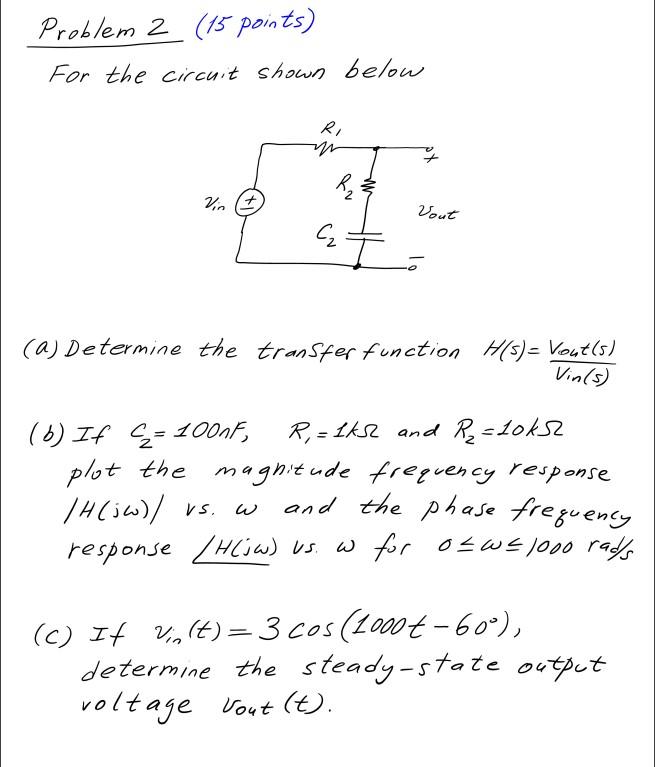 Problem 2 (15 points)
For the circuit shown below
R₁
+
R₂
Vin
±
Vout
C₂
−
(a) Determine the transfer function H(s) = Vout(s)
Vin(s)
(b) If C₂ = 100nF, R₁ = 1kΩ and R₂ = 10kΩ
plot the magnitude frequency response
|H(jω)| vs. ω and the phase frequency
response ∠H(jω) vs. ω for 0 ≤ ω ≤ 1000 rad/s
(c) If vin(t) = 3 cos(1000t − 60°),
determine the steady-state output
voltage vout(t).